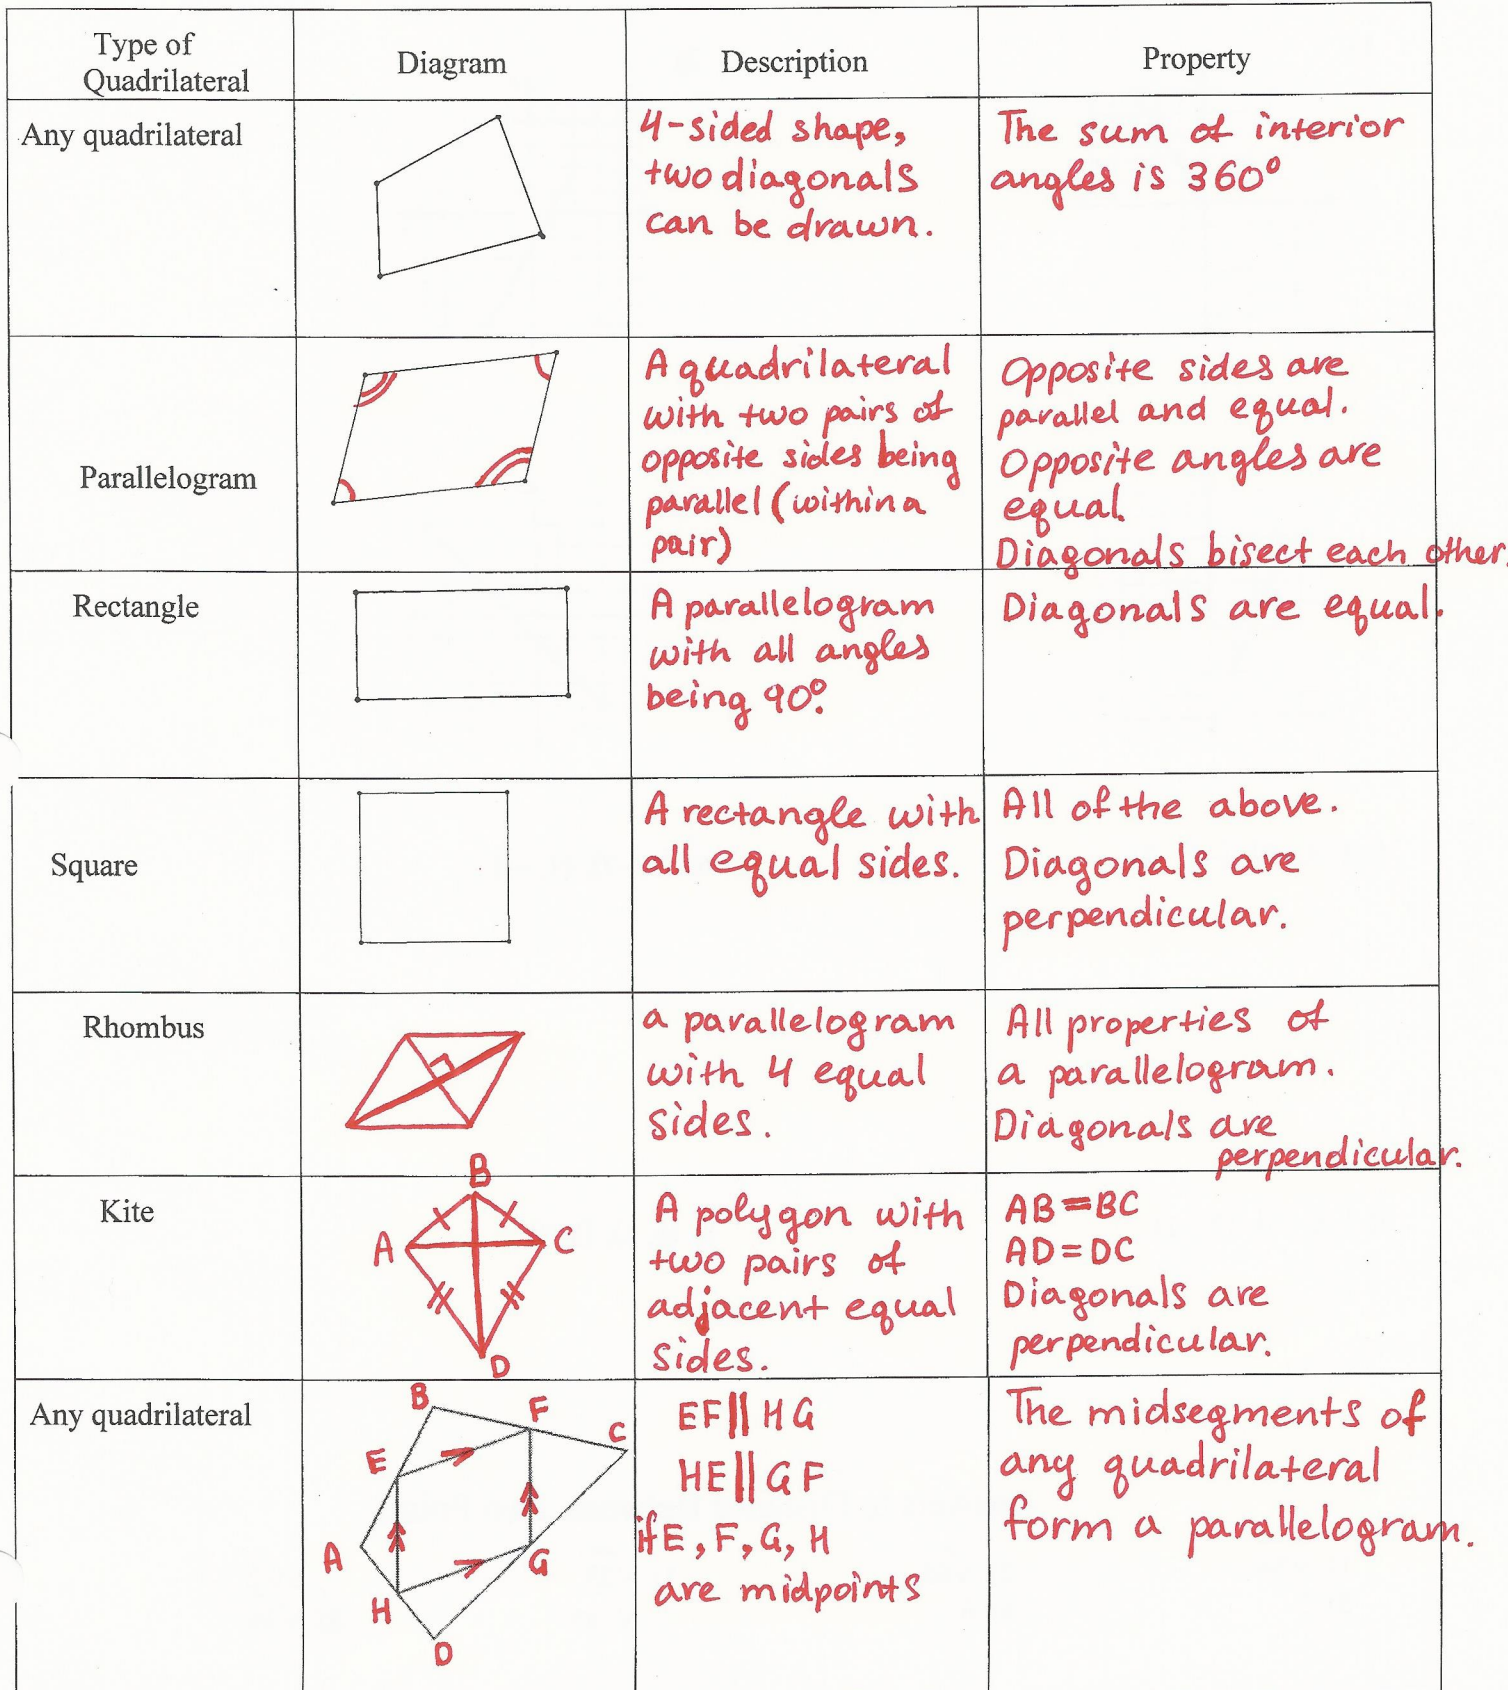 Type of
Quadrilateral
Diagram
Description
Property
Any quadrilateral
4-sided shape,
two diagonals
can be drawn.
The sum of interior
angles is 360°
Parallelogram
A quadrilateral
with two pairs of
opposite sides being
parallel (within a
pair)
Opposite sides are
parallel and equal.
Opposite angles are
equal.
Diagonals bisect each other.
Rectangle
A parallelogram
with all angles
being 90°.
Diagonals are equal.
Square
A rectangle with
all equal sides.
All of the above.
Diagonals are
perpendicular.
Rhombus
a parallelogram
with 4 equal
sides.
All properties of
a parallelogram.
Diagonals are
perpendicular.
Kite
B
A
C
D
A polygon with
two pairs of
adjacent equal
sides.
AB=BC
AD=DC
Diagonals are
perpendicular.
Any quadrilateral
B
F
C
E
A
G
H
D
EF||HG
HE||GF
if E, F, G, H
are midpoints
The midsegments of
any quadrilateral
form a parallelogram.